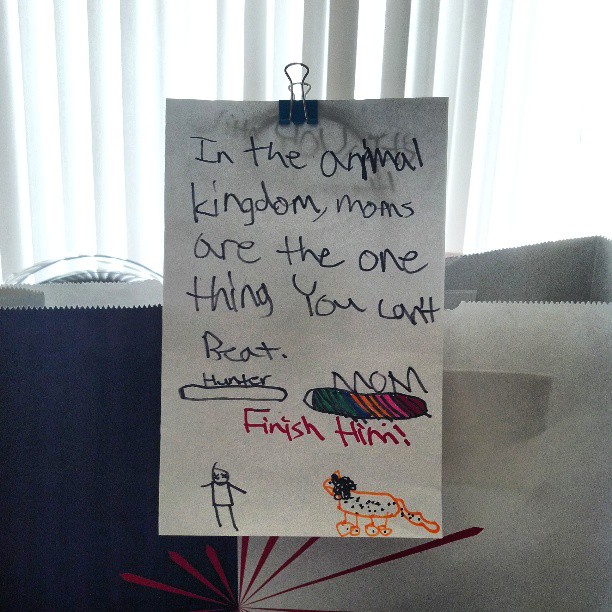 In the animal
kingdom, moms
are the one
thing You can't
Beat.
Hunter MOM
Finish Him!